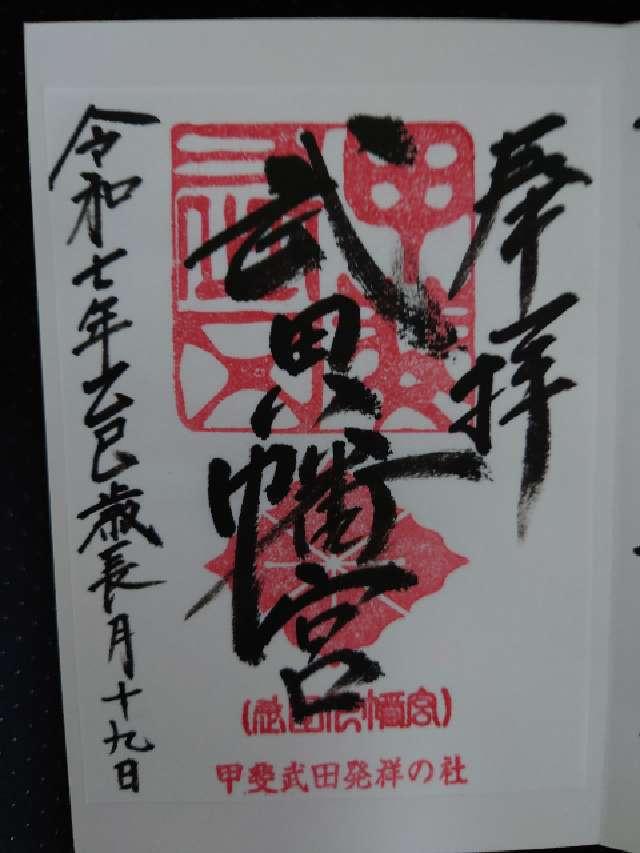 奉拝
武田八幡宮
令和七年乙巳歳長月十九日
武田八幡宮
甲斐武田発祥の社